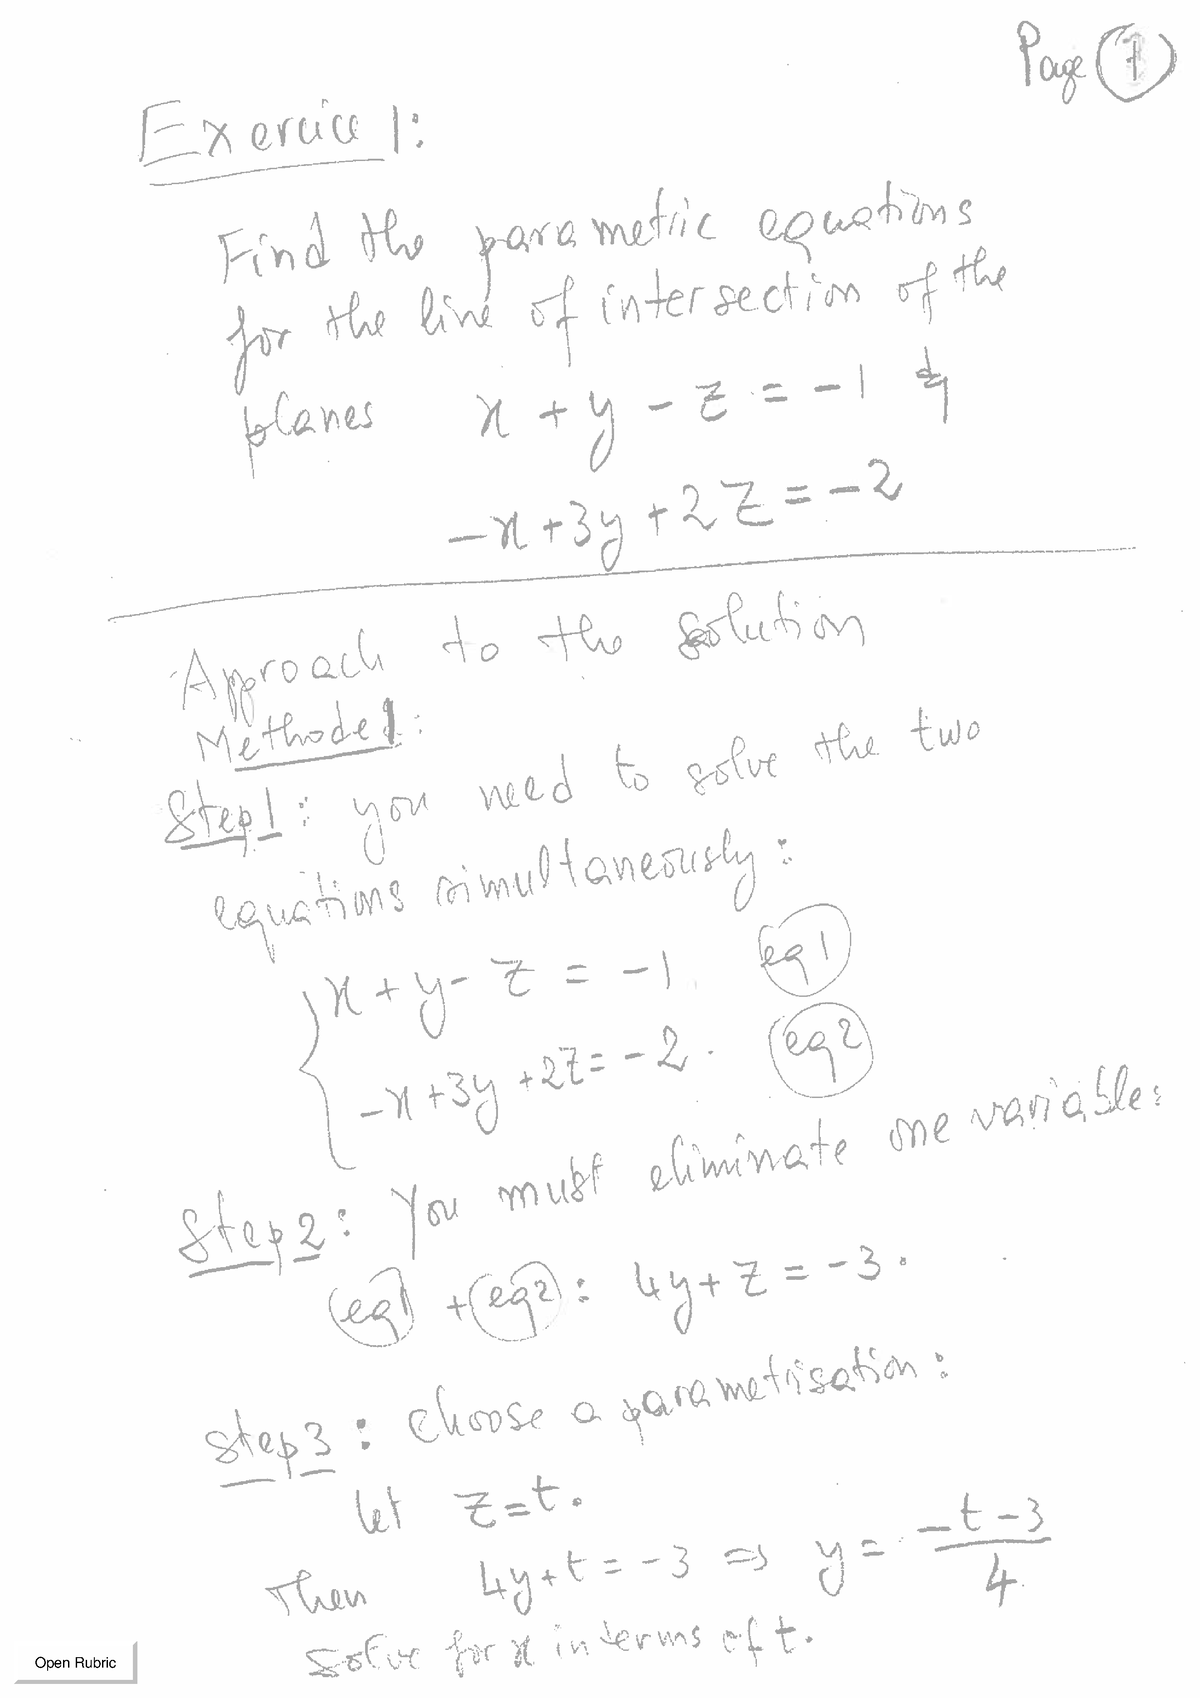 Page 1
Exercice 1:
Find the parametric equations
for the line of intersection of the
planes x + y - z = -1 &
-x + 3y + 2z = -2
Approach to the solution
Methode 1:
Step 1: you need to solve the two
equations simultaneously:
x + y - z = -1 eq1
-x + 3y + 2z = -2. eq2
Step 2: You must eliminate one variable:
eq1 + eq2: 4y + z = -3.
Step 3: choose a parametrisation:
let z = t.
Then 4y + t = -3 => y = (-t-3)/4
solve for x in terms of t.
Open Rubric